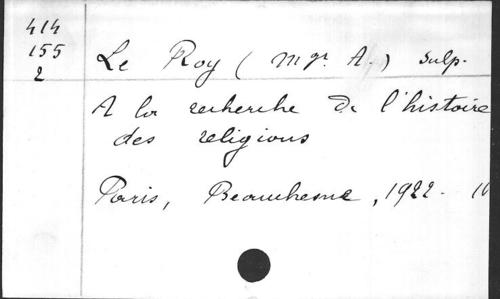 414
155
2
Le Roy (Mgr A.) sulp.
A la recherche de l'histoire
des religions
Paris, Beauchesne, 1922 -